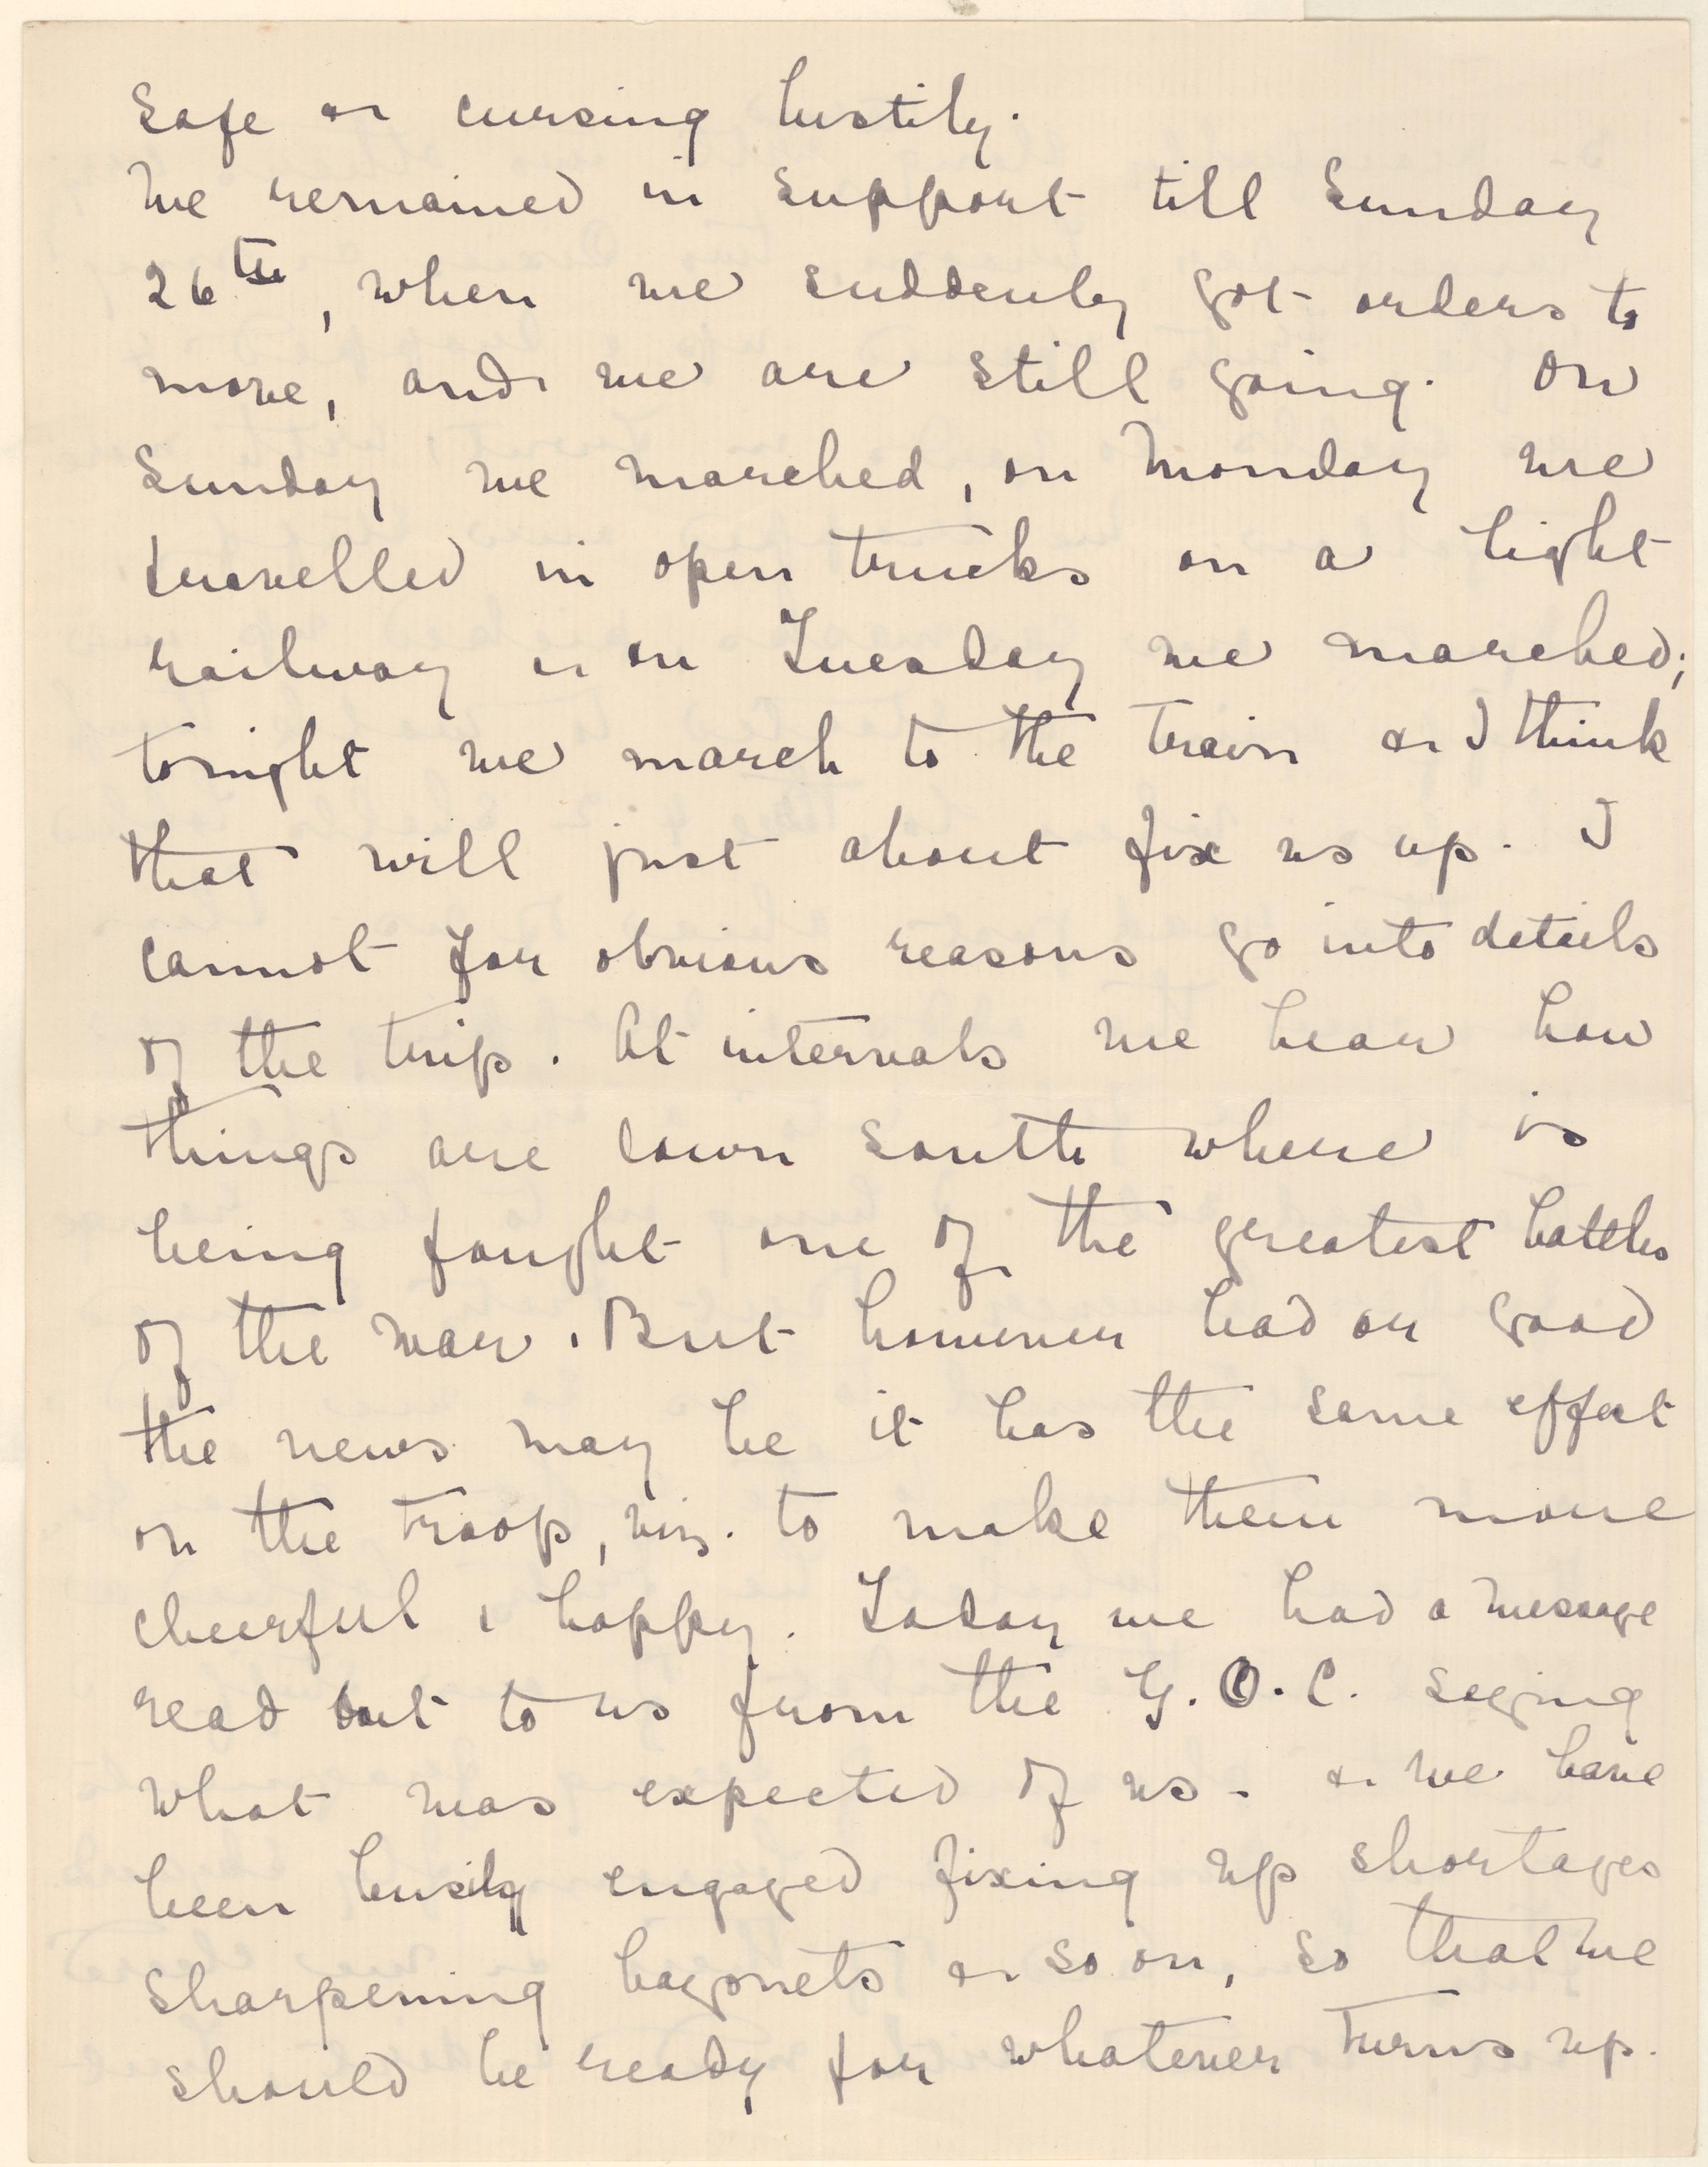 safe & cursing lustily.
We remained in support till Sunday
26th, when we suddenly got orders to
move, and we are still going. On
Sunday we marched, on Monday we
travelled in open trucks on a light
railway & on Tuesday we marched;
tonight we march to the train & I think
that will just about fix us up. I
cannot for obvious reasons go into details
of the trip. At intervals we hear how
things are down south where is
being fought one of the greatest battles
of the war. But however bad or good
the news may be it has the same effect
on the troops, viz. to make them more
cheerful & happy. Today we had a message
read out to us from the G.O.C. saying
what was expected of us - & we have
been busily engaged fixing up shortages
sharpening bayonets & so on, so that we
should be ready for whatever turns up.